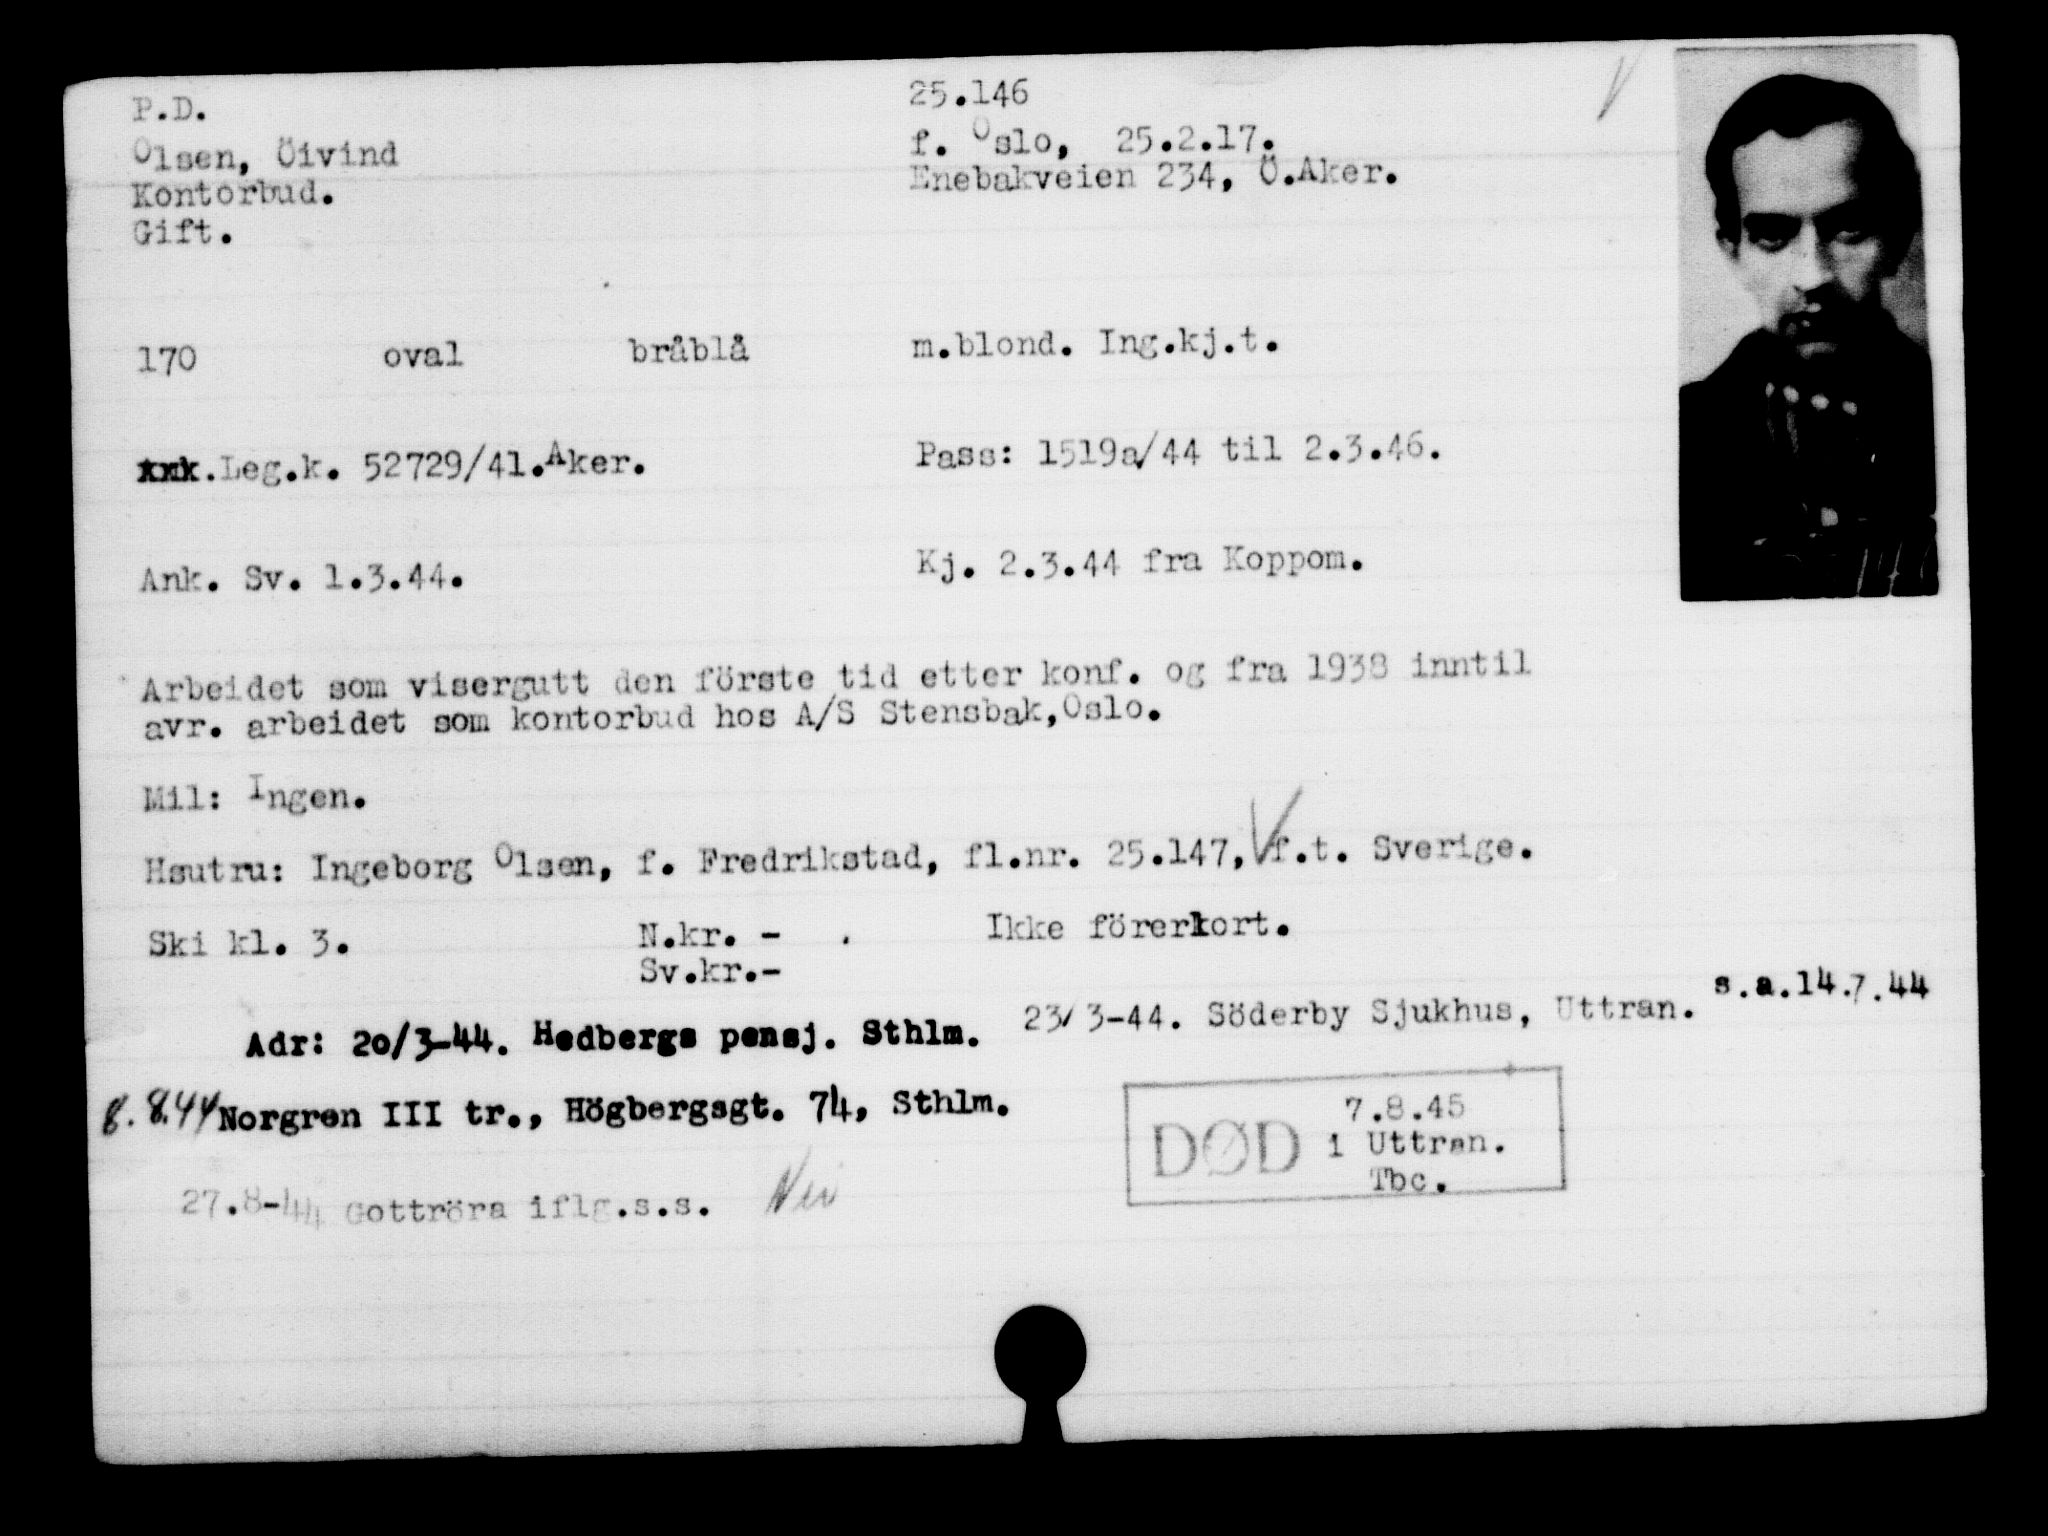 P.D.
25.146
Olsen, Öivind
f. Oslo, 25.2.17.
Kontorbud.
Enebakveien 234, Ö.Aker.
Gift.
170 oval bråblå m.blond. Ing.kj.t.
Leg.k. 52729/41.Aker.
Pass: 1519a/44 til 2.3.46.
Ank. Sv. 1.3.44.
Kj. 2.3.44 fra Koppom.
Arbeidet som visergutt den förste tid etter konf. og fra 1938 inntil
avr. arbeidet som kontorbud hos A/S Stensbak,Oslo.
Mil: Ingen.
Hsutru: Ingeborg Olsen, f. Fredrikstad, fl.nr. 25.147, f.t. Sverige.
Ski kl. 3. N.kr. - . Ikke förerkort.
Sv.kr.-
Adr: 20/3-44. Hedbergs pensj. Sthlm. 23/3-44. Söderby Sjukhus, Uttran. s.a.14.7.44
8.8.44 Norgren III tr., Högbergsgt. 74, Sthlm.
DØD 7.8.45
i Uttran.
Tbc.
27.8-44 Gottröra iflg.s.s.